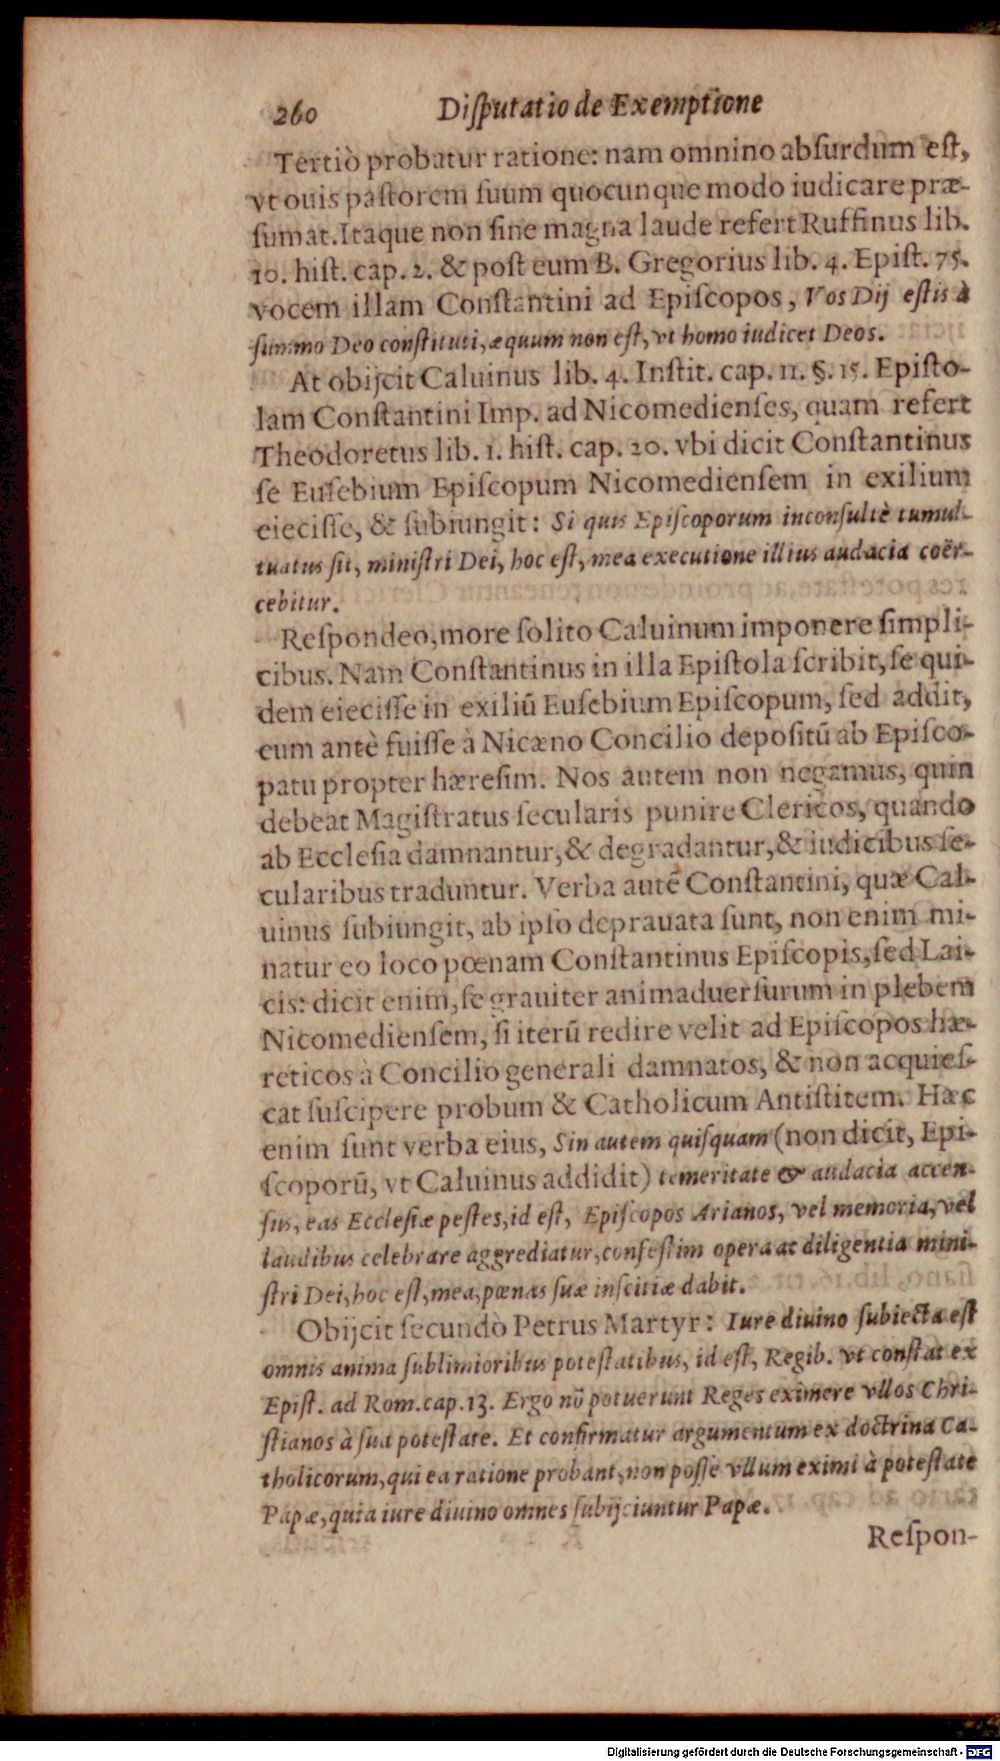 260 Diſputatio de Exemptione
Tertiò probatur ratione: nam omnino abſurdum eſt,
vt ouis paſtorem ſuum quocunque modo iudicare præ-
ſumat. Itaque non ſine magna laude refert Ruffinus lib.
10. hiſt. cap. 2. & poſt eum B. Gregorius lib. 4. Epiſt. 75.
vocem illam Conſtantini ad Epiſcopos, Vos Dij eſtis à
ſummo Deo conſtituti, æquum non eſt, vt homo iudicet Deos.
At obijcit Caluinus lib. 4. Inſtit. cap. 11. §. 15. Epiſto-
lam Conſtantini Imp. ad Nicomedienſes, quam refert
Theodoretus lib. 1. hiſt. cap. 20. vbi dicit Conſtantinus
ſe Euſebium Epiſcopum Nicomedienſem in exilium
eieciſſe, & ſubiungit: Si quis Epiſcoporum inconſultè tumul-
tuatus ſit, miniſtri Dei, hoc eſt, mea executione illius audacia coër-
cebitur.
Reſpondeo, more ſolito Caluinum imponere ſimpli-
cibus. Nam Conſtantinus in illa Epiſtola ſcribit, ſe qui-
dem eieciſſe in exiliū Euſebium Epiſcopum, ſed addit,
eum antè fuiſſe à Nicæno Concilio depoſitū ab Epiſco-
patu propter hæreſim. Nos autem non negamus, quin
debeat Magiſtratus ſecularis punire Clericos, quando
ab Eccleſia damnantur, & degradantur, & iudicibus ſe-
cularibus traduntur. Verba autē Conſtantini, quæ Cal-
uinus ſubiungit, ab ipſo deprauata ſunt, non enim mi-
natur eo loco pœnam Conſtantinus Epiſcopis, ſed Lai-
cis: dicit enim, ſe grauiter animaduerſurum in plebem
Nicomedienſem, ſi iterū redire velit ad Epiſcopos hæ-
reticos à Concilio generali damnatos, & non acquieſ-
cat ſuſcipere probum & Catholicum Antiſtitem. Hæc
enim ſunt verba eius, Sin autem quiſquam (non dicit, Epi-
ſcoporū, vt Caluinus addidit) temeritate & audacia accen-
ſus, eas Eccleſiæ peſtes, id eſt, Epiſcopos Arianos, vel memoria, vel
laudibus celebrare aggrediatur, confeſtim opera ac diligentia mini-
ſtri Dei, hoc eſt, mea, pœnas ſuæ inſcitiæ dabit.
Obijcit ſecundò Petrus Martyr: Iure diuino ſubiecta eſt
omnis anima ſublimioribus poteſtatibus, id eſt, Regib. vt conſtat ex
Epiſt. ad Rom. cap. 13. Ergo nō potuerunt Reges eximere vllos Chri-
ſtianos à ſua poteſtate. Et confirmatur argumentum ex doctrina Ca-
tholicorum, qui ea ratione probant, non poſſe vllum eximi à poteſtate
Papæ, quia iure diuino omnes ſubijciuntur Papæ.
Reſpon-
Digitalisierung gefördert durch die Deutsche Forschungsgemeinschaft - DFG